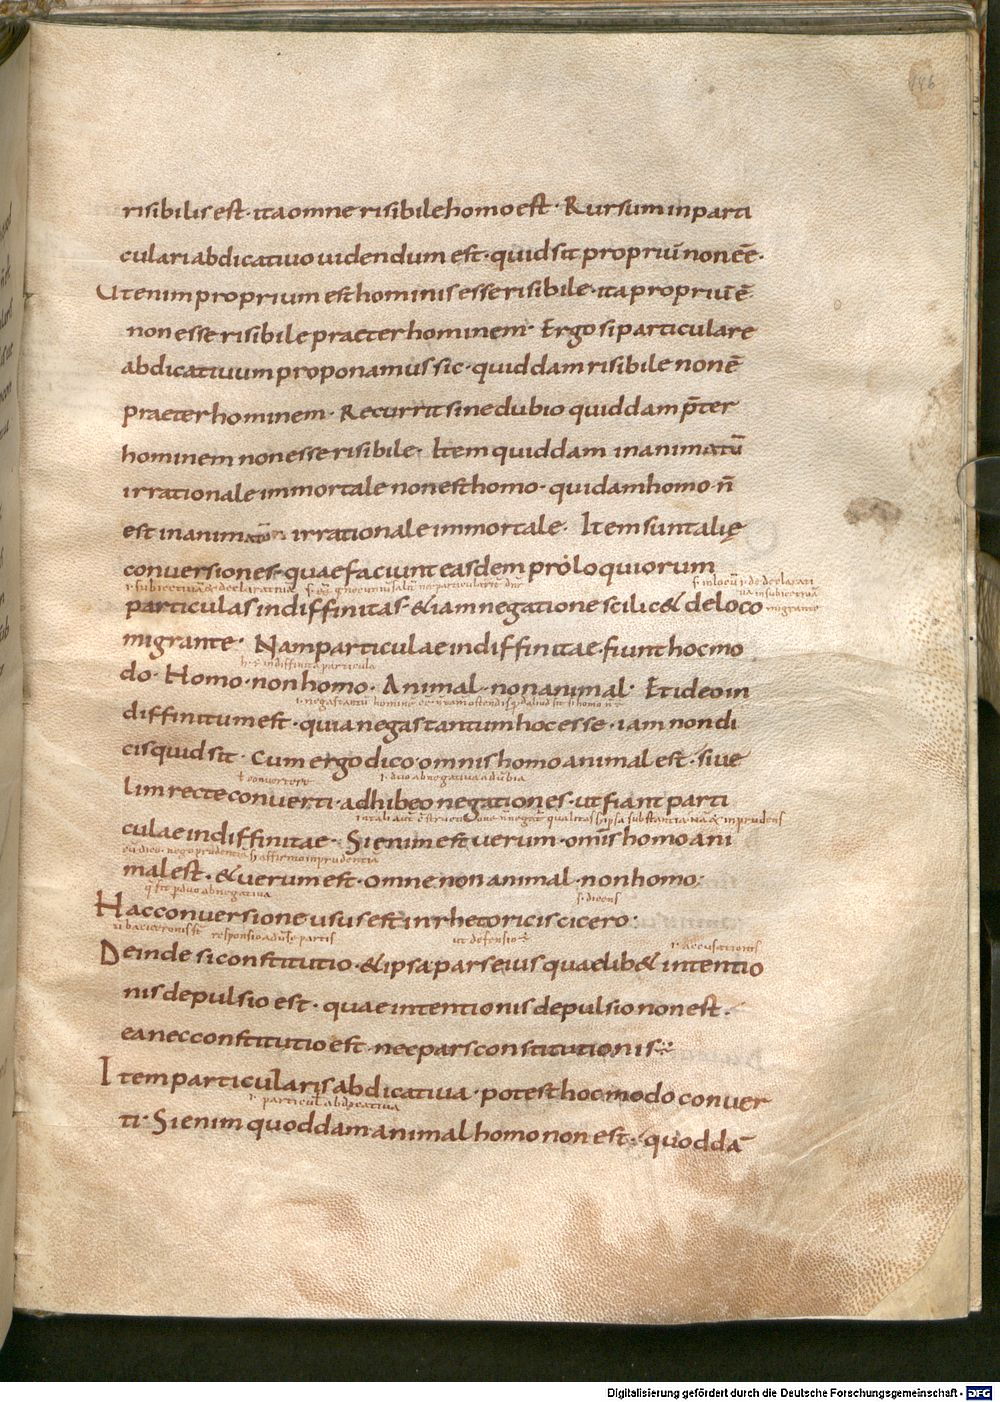 146
risibilis est · ita omne risibile homo est · Rursum in parti
culari abdicativo videndum est · quid sit propriū non eē ·
Ut enim proprium est hominis esse risibile · ita propriū ē
non esse risibile praeter hominem · Ergo si particulare
abdicativum proponamus sic · quiddam risibile non ē
praeter hominem · Recurrit sine dubio quiddam p̄ter
hominem non esse risibile · Item quiddam inanimatū
irrationale immortale non est homo · quidam homo n̄
est inanimatū irrationale immortale · Item sunt alię
conversiones · quae faciunt easdem proloquiorum
.i. subiectivā & declarativā
particulas indiffinitas · & iam negatione scilic& de loco
migrante
migrante · Nam particulae indiffinitae · fiunt hoc mo
h · ē indiffinita particula
do · Homo · non homo · Animal · non animal · Et ideo in
diffinitum est · quia negas tantum hoc esse · iam non di
cis quid sit · Cum ergo dico · omnis homo animal est · si ve
ł convertere
.i. duo abnegativa adverbia
lim recte converti · adhibeo negationes · ut fiant parti
culae indiffinitae · Si enim est verum · omīs homo ani
mal est · & verum est · omne non animal · non homo ·
.s. dicens
Hac conversione usus est in rhetoricis cicero ·
verba ciceronis st̄
responsio adūse partis
ut defensio
.i. accusationis
Deinde si constitutio · & ipsa pars eius quaelib& intentio
nis depulsio est · quae intentionis depulsio non est ·
ea nec constitutio est · nec pars constitutionis ·
Item particularis abdicativa · potest hoc modo conver
.i. particul abdicativa
ti · Si enim quoddam animal homo non est · quoddā
Digitalisierung gefördert durch die Deutsche Forschungsgemeinschaft - DFG